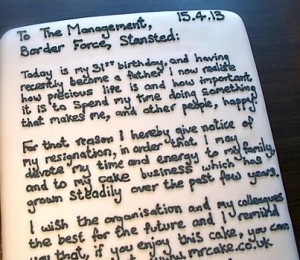 15.4.13
To The Management,
Border Force, Stansted:
Today is my 31st birthday, and having
recently become a father I now realise
how precious life is and how important
it is to spend my time doing something
that makes me, and other people, happy.
For that reason I hereby give notice of
my resignation, in order that I may
devote my time and energy to my family,
and to my cake business which has
grown steadily over the past few years.
I wish the organisation and my colleagues
the best for the future and I remind
you that, if you enjoy this cake, you can
www.mrcake.co.uk